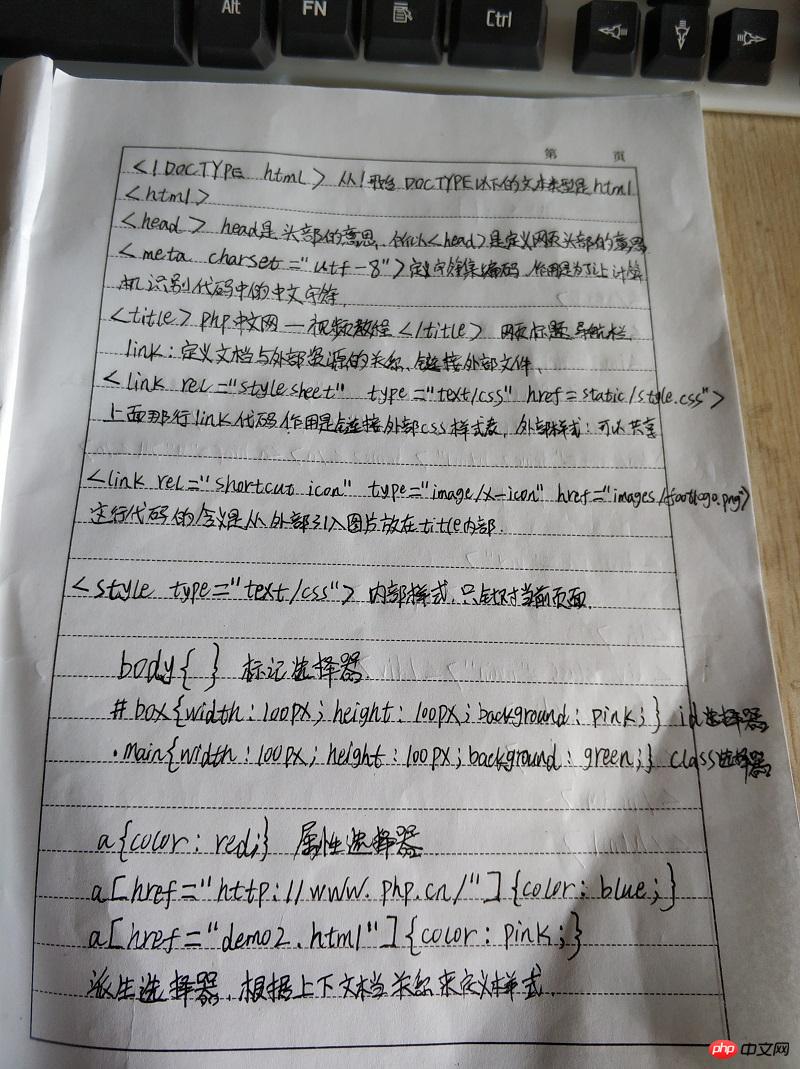 Alt
FN
Ctrl
第 页
<!DOCTYPE html> 从!开始DOCTYPE以下的文本类型是html
<html>
<head> head是头部的意思,所以<head>是定义网页头部的意思
<meta charset="utf-8">定义字符集编码,作用是为了让计算
机识别代码中的中文字符.
<title>php中文网—视频教程</title> 网页标题导航栏.
link:定义文档与外部资源的关系.链接外部文件、
<link rel="stylesheet" type="text/css" href=static/style.css">
上面那行link代码作用是链接外部css样式表,外部样式:可以共享
<link rel="shortcut icon" type="image/x-icon" href="images/footlogo.png">
这行代码的含义是从外部引入图片放在title内部.
<style type="text/css"> 内部样式.只针对当前页面.
body{ } 标记选择器.
#box{width:100px;height:100px;background:pink;} id选择器
.main{width:100px;height:100px;background:green;} class选择器
a{color:red;} 属性选择器
a[href="http://www.php.cn/"]{color:blue;}
a[href="demo2.html"]{color:pink;}
派生选择器.根据上下文档关系来定义样式.
php 中文网